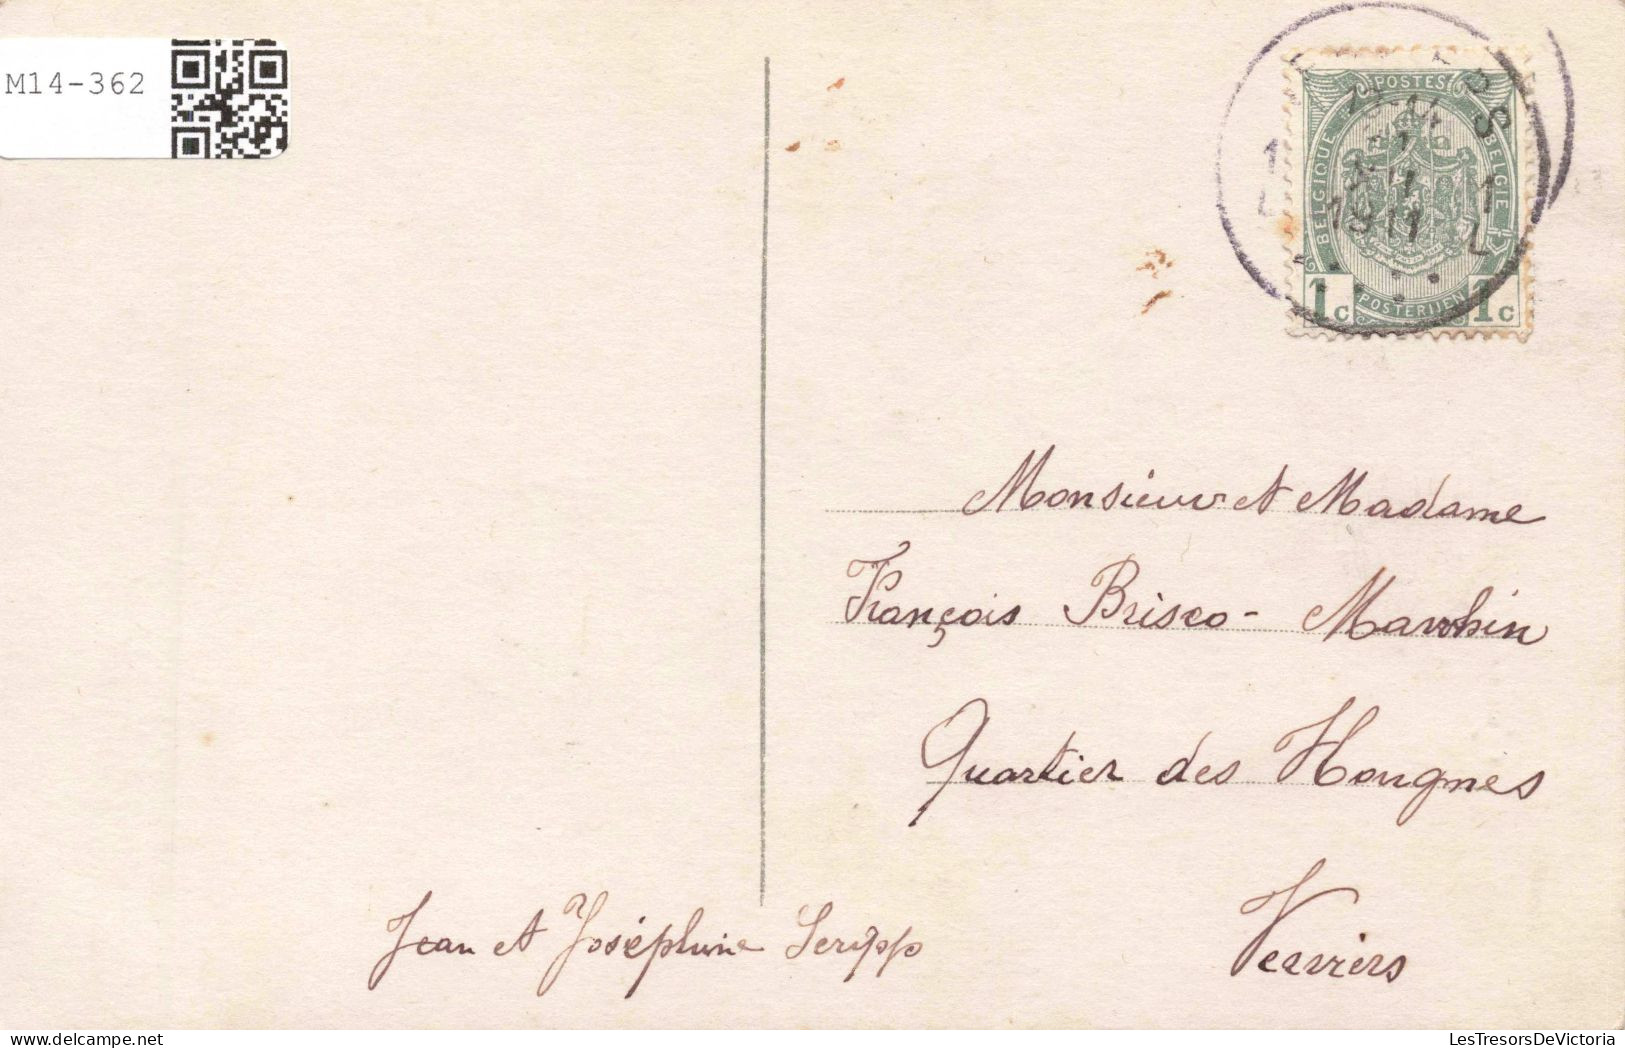 M14-362
POSTES
BELGIQUE
BELGIE
1911
1c
POSTERIJEN
1c
Monsieur et Madame
François Brisco - Mawhin
Quartier des Hougnes
Verviers
Jean et Joséphine Serupp
LesTresorsDeVictoria